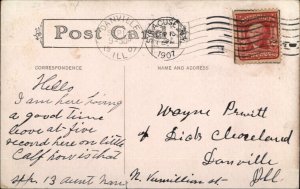 Post Card
DANVILLE
ILL.
1907
CORRESPONDENCE
NAME AND ADDRESS
Hello
I am here having
a good time
leave at five
second here on little
Calf how is that
13 aunt
Wayne Pruitt
Cleaveland
Danville
Ill.
N. Vermillion st